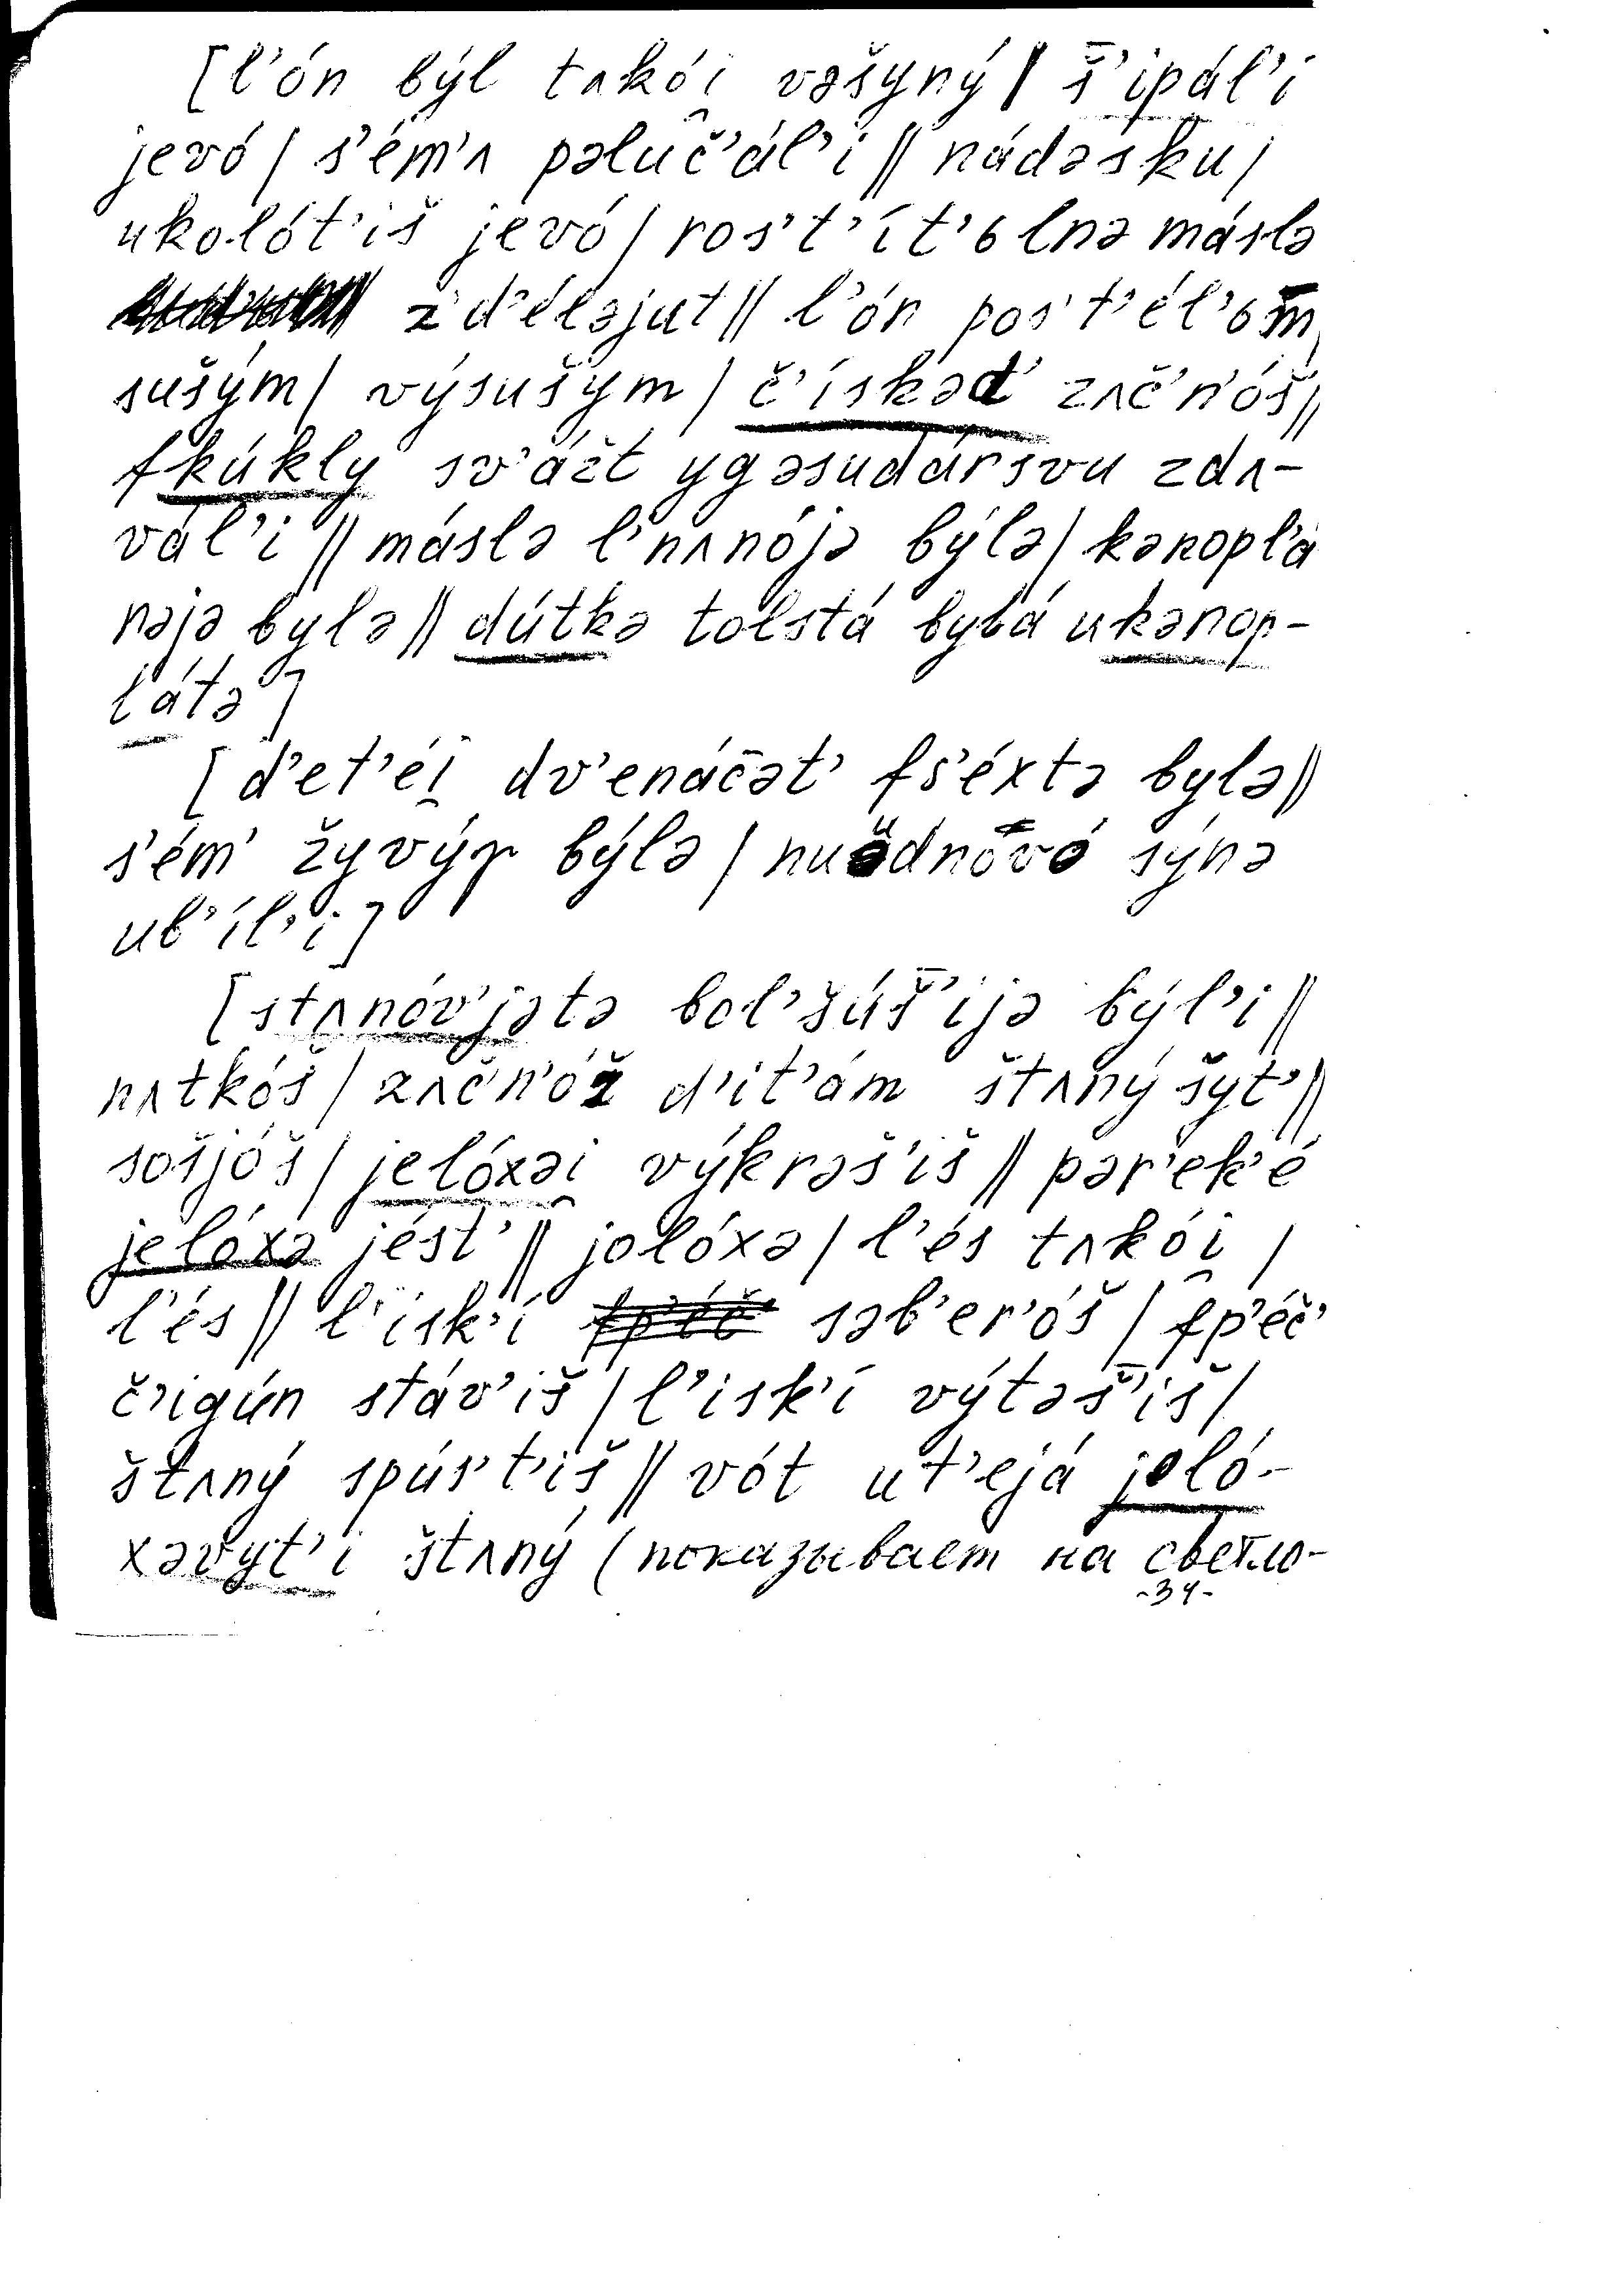 [l’ón býl tʌkói̯ vəšyný | š̄’ipál’i
jevó | s’ém’ʌ pəluč’ál’i || nádəsku |
ukolót’iš jevó | ros’t’ít’ьlnə máslə
z’d’éləjut || l’ón pos’t’él’ьm̄
sušým | výsušym | č’ískəd’ zʌč’n’óš ||
fkúkly sv’ážt ygəsudársvu zdʌ-
vál’i || máslə l’nʌnójə býlə | kənopl’á
nəjə bylə || dútkə tolstá bylá ukənop-
l’átə]
[d’et’éi̯ dv’enáč̄ət’ fs’éxtə bylə ||
s’ém’ žyvýɣ býlə | nuədnovó sýnə
ub’íl’i]
[stʌnóv’jətə bol’šúš̄’ijə býl’i ||
nʌtkóš | zʌč’n’óž d’it’ám štʌný šyt’ ||
sošjóš | jelóxəi̯ výkrəš’iš || pər’ek’é
jelóxə jést’ || jolóxə | l’és tʌkói̯ |
l’és || l’isk’í səb’er’óš | fp’éč’
č’igún stáv’iš | l’isk’í výtəš̄’iš |
štʌný spús’t’iš || vót ut’ejá joló-
xəvyt’i štʌný (показывает на светло-
-34-